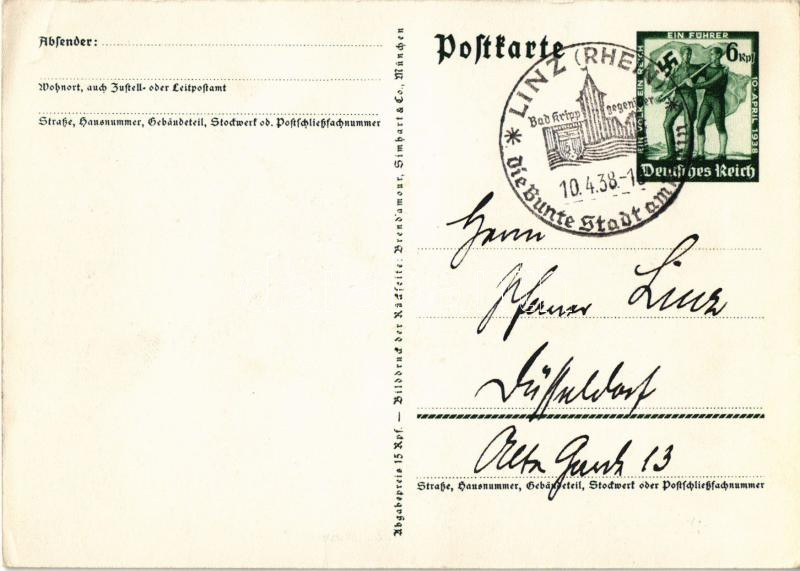 Absender:
Wohnort, auch Zustell- oder Leitpostamt
Straße, Hausnummer, Gebäudeteil, Stockwerk od. Postschließfachnummer
Abgabepreis 15 Rpf. — Bilddruck der Rückseite: Brend'amour, Simhart & Co., München
Postkarte
EIN VOLK EIN REICH
EIN FÜHRER
10. APRIL 1938
6 Rpf
Deutsches Reich
* LINZ (RHEIN) *
Bad Kripp gegenüber
10.4.38.-1
die Bunte Stadt am Rhein
Herrn
Pfarrer Linz
Düsseldorf
Alte Garde 13
Straße, Hausnummer, Gebäudeteil, Stockwerk oder Postschließfachnummer